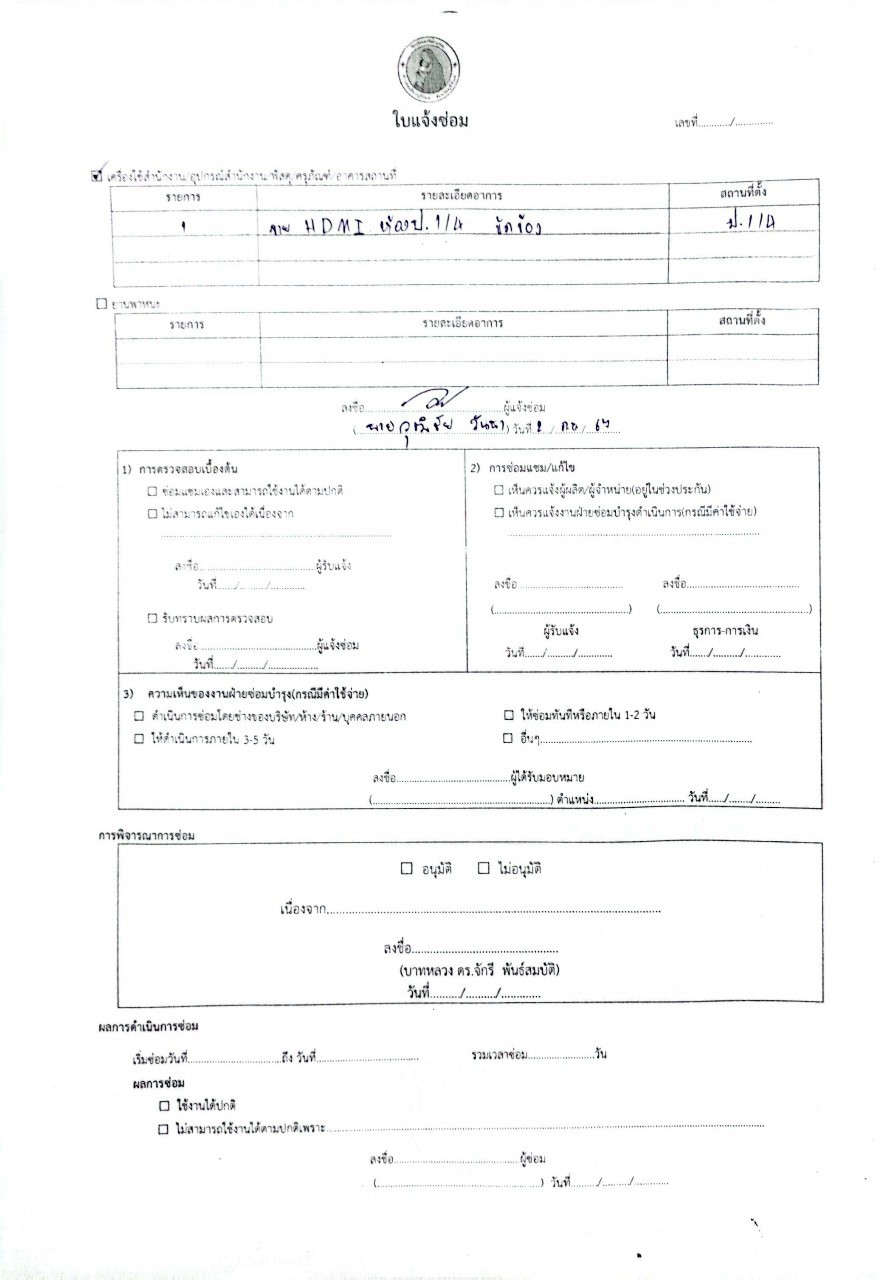 ใบแจ้งซ่อม
เลขที่.........../.............
เครื่องใช้สำนักงาน/อุปกรณ์สำนักงาน/พัสดุ/ครุภัณฑ์/อาคารสถานที่
รายการ รายละเอียดอาการ สถานที่ตั้ง
1 สาย HDMI ห้องป.1/4 ขัดข้อง ป.1/4
ยานพาหนะ
รายการ รายละเอียดอาการ สถานที่ตั้ง
ลงชื่อ ผู้แจ้งซ่อม
(นายวุฒิชัย) วันที่ / กย /
1) การตรวจสอบเบื้องต้น
ซ่อมแซมเองและสามารถใช้งานได้ตามปกติ
ไม่สามารถแก้ไขเองได้เนื่องจาก
ลงชื่อ..............................ผู้รับแจ้ง
วันที่....../........./............
รับทราบผลการตรวจสอบ
ลงชื่อ..............................ผู้แจ้งซ่อม
วันที่...../......../................
2) การซ่อมแซม/แก้ไข
เห็นควรแจ้งผู้ผลิต/ผู้จำหน่าย(อยู่ในช่วงประกัน)
เห็นควรแจ้งงานฝ่ายซ่อมบำรุงดำเนินการ(กรณีมีค่าใช้จ่าย)
ลงชื่อ............................ ลงชื่อ..............................
(....................................) (.......................................)
ผู้รับแจ้ง ธุรการ-การเงิน
วันที่....../......../............ วันที่....../......../............
3) ความเห็นของงานฝ่ายซ่อมบำรุง(กรณีมีค่าใช้จ่าย)
ดำเนินการซ่อมโดยช่างของบริษัท/ห้าง/ร้าน/บุคคลภายนอก ให้ซ่อมทันทีหรือภายใน 1-2 วัน
ให้ดำเนินการภายใน 3-5 วัน อื่นๆ........................................................
ลงชื่อ..............................ผู้ได้รับมอบหมาย
(................................................) ตำแหน่ง......................... วันที่...../......./........
การพิจารณาการซ่อม
อนุมัติ ไม่อนุมัติ
เนื่องจาก................................................................................
ลงชื่อ.......................................
(บาทหลวง ดร.จักรี พันธ์สมบัติ)
วันที่......../........./............
ผลการดำเนินการซ่อม
เริ่มซ่อมวันที่.........................ถึง วันที่............................ รวมเวลาซ่อม...................วัน
ผลการซ่อม
ใช้งานได้ปกติ
ไม่สามารถใช้งานได้ตามปกติเพราะ................................................................................
ลงชื่อ..................................ผู้ซ่อม
(.............................................) วันที่......./......../...........